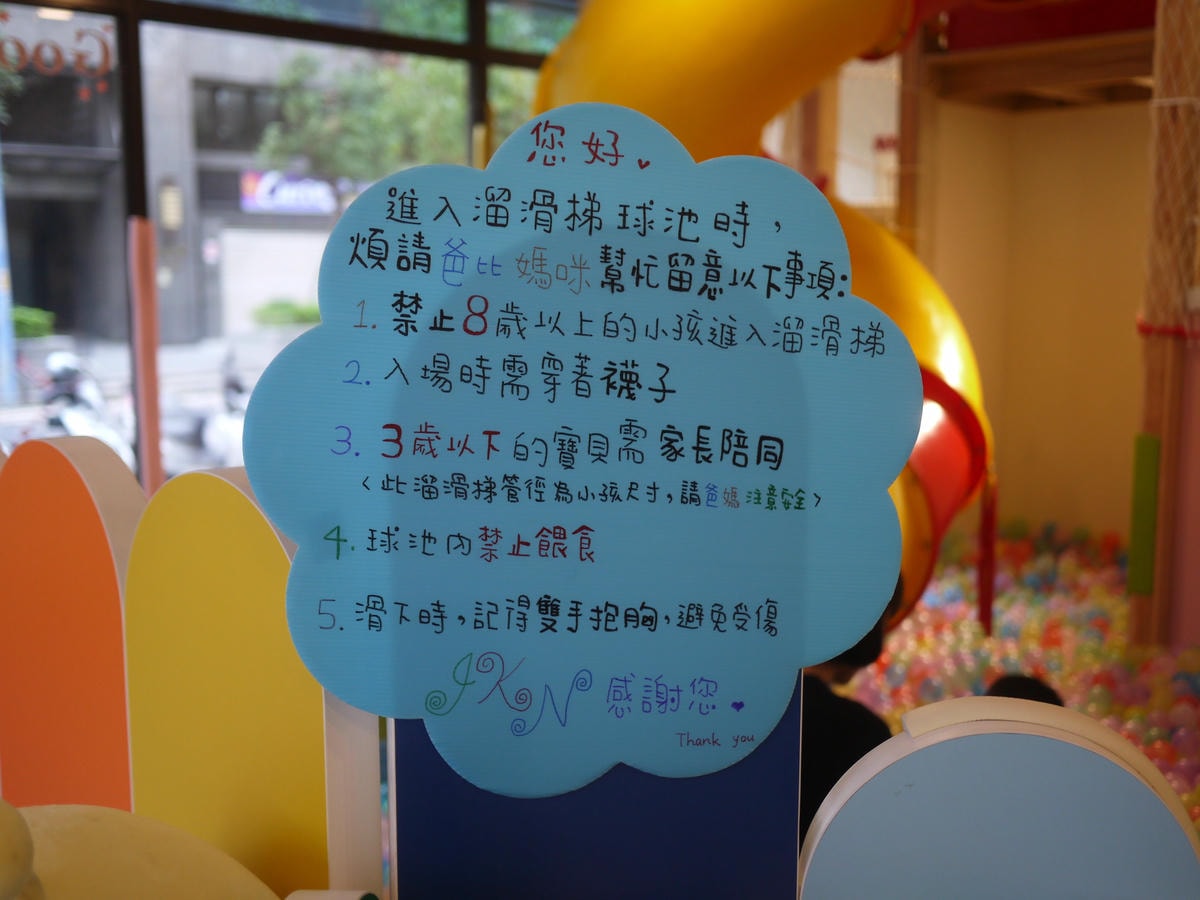 您好♥
進入溜滑梯球池時，
煩請爸比媽咪幫忙留意以下事項：
1. 禁止8歲以上的小孩進入溜滑梯
2. 入場時需穿著襪子
3. 3歲以下的寶貝需家長陪同
<此溜滑梯管徑為小孩尺寸，請爸媽注意安全>
4. 球池內禁止餵食
5. 滑下時，記得雙手抱胸，避免受傷
JKN 感謝您♥
Thank you